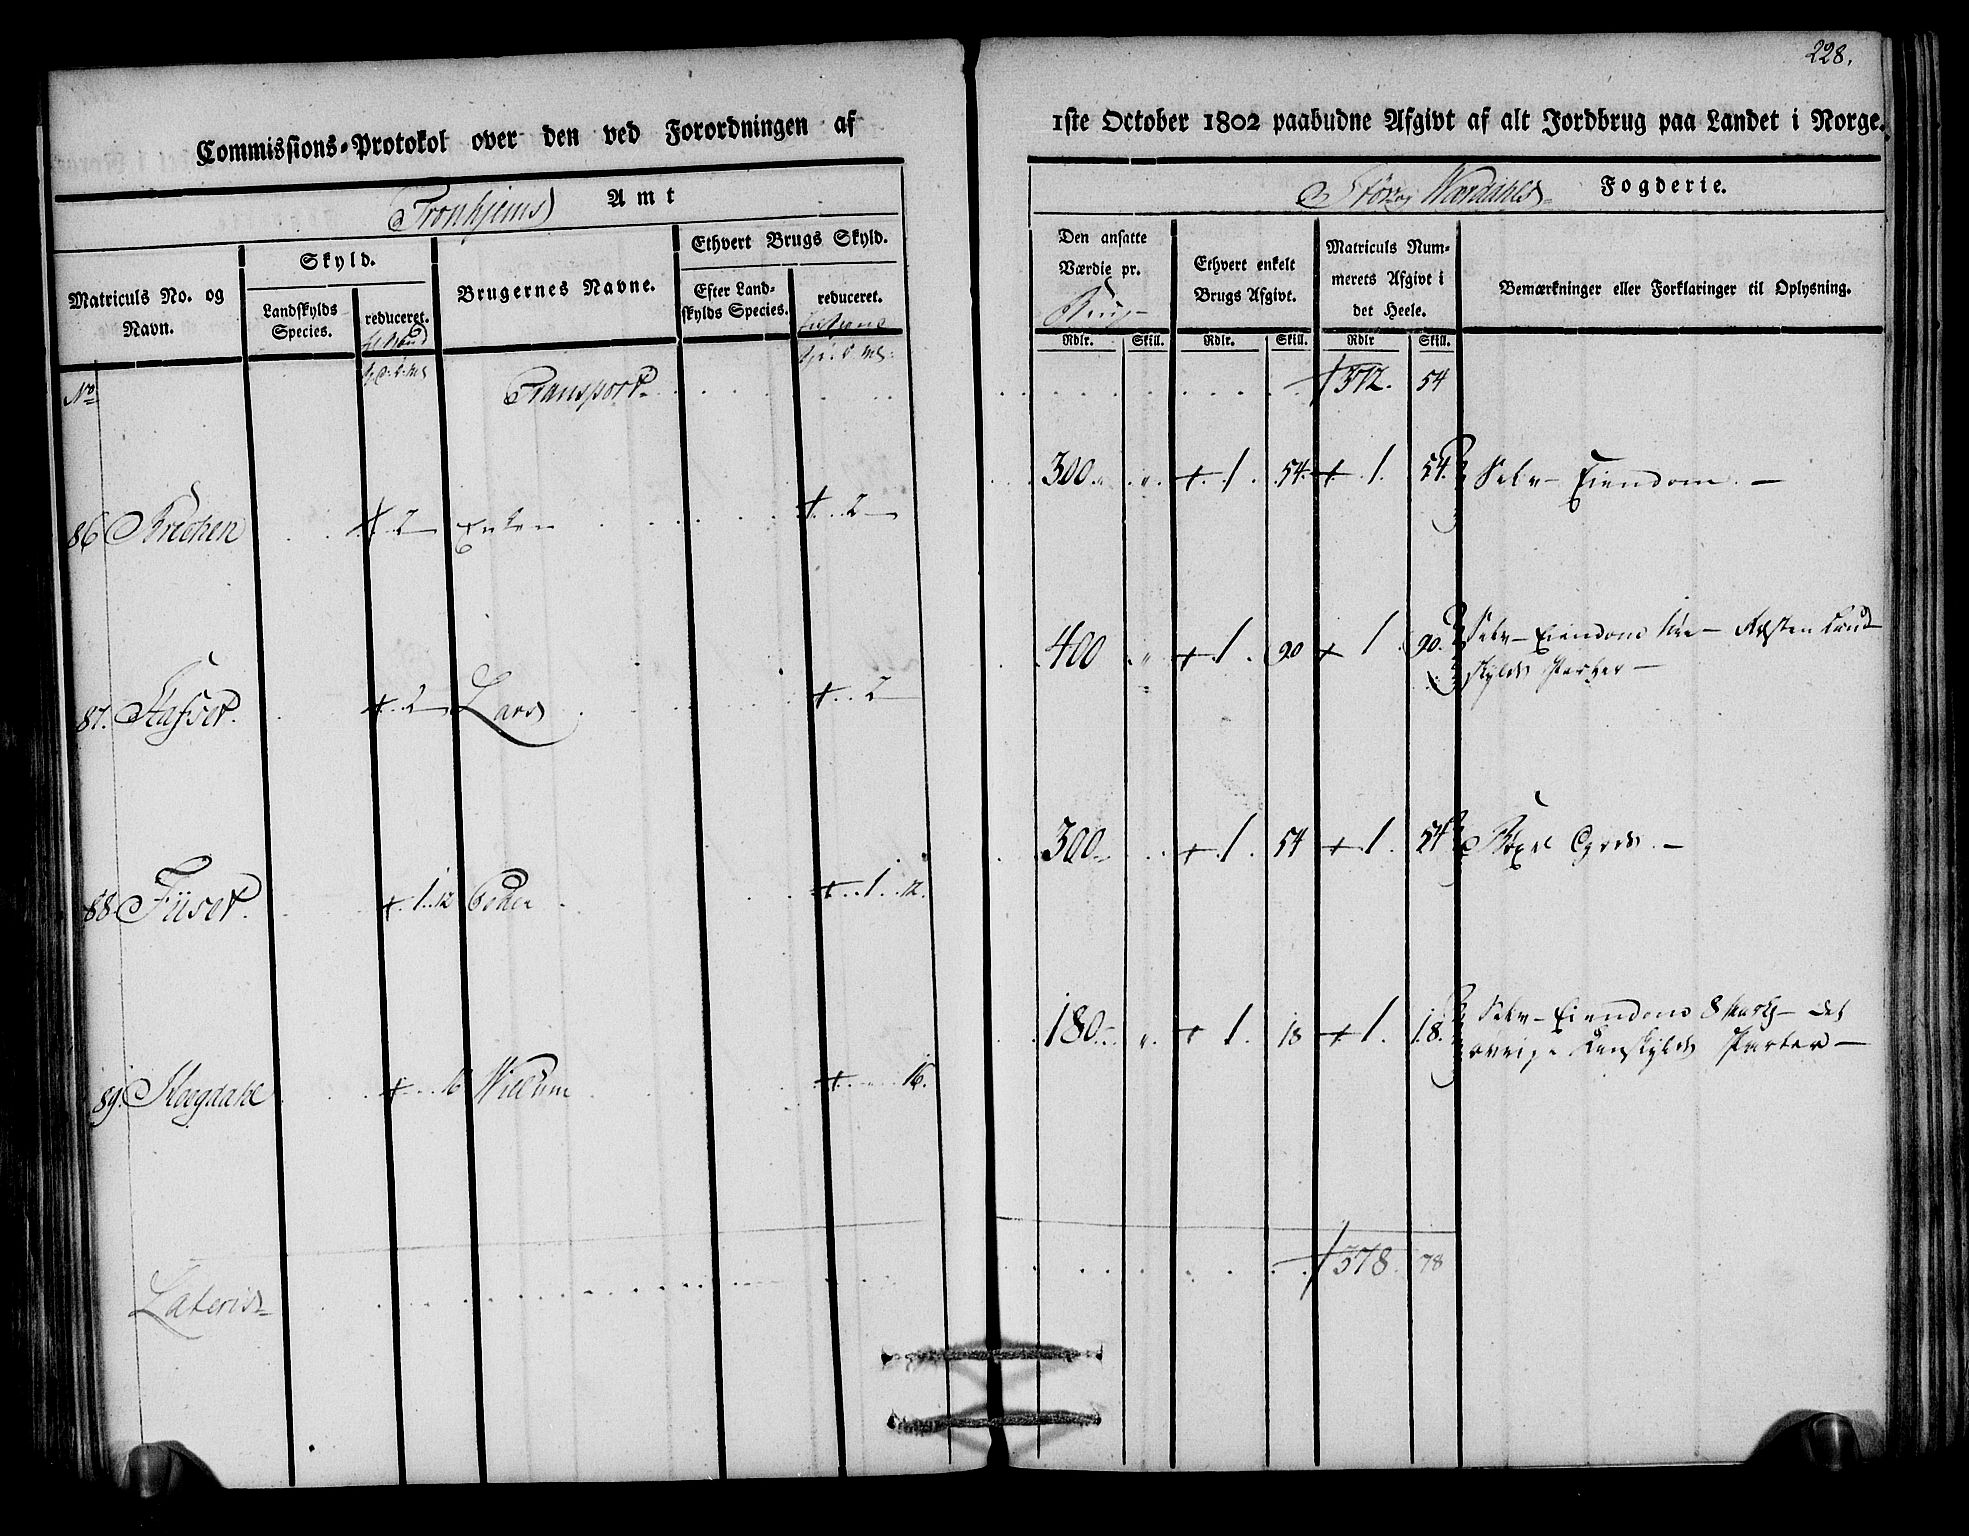 228.
Commissions-Protokol over den ved Forordningen af 1ste October 1802 paabudne Afgivt af alt Jordbrug paa Landet i Norge.
Tronhjems Amt
Stör og Værdahls Fogderie.
Matriculs No. og Navn.
Skyld.
Landskylds Species.
reduceret.
Brugernes Navne.
Ethvert Brugs Skyld.
Efter Landskylds Species.
reduceret.
Den ansatte Værdie pr.
Brug
Ethvert enkelt Brugs Afgivt.
Matriculs Nummerets Afgivt i det Heele.
Bemærkninger eller Forklaringer til Oplysning.
Rdlr. Skill. Rdlr. Skill. Rdlr Skill.
No
Transport 372. 54
86 2 Enken 2 300 1 54 1 54 Selv-Eiendom
87. 2 Lars 2 400 1 90 1 90. Selv-Eiendom
88. Füset. 1 12 Peder 1 12. 300 1 54 1 54
89. 16 Willum 16. 180 1 18 1 18. Selv-Eiendom
Lateris 378. 78